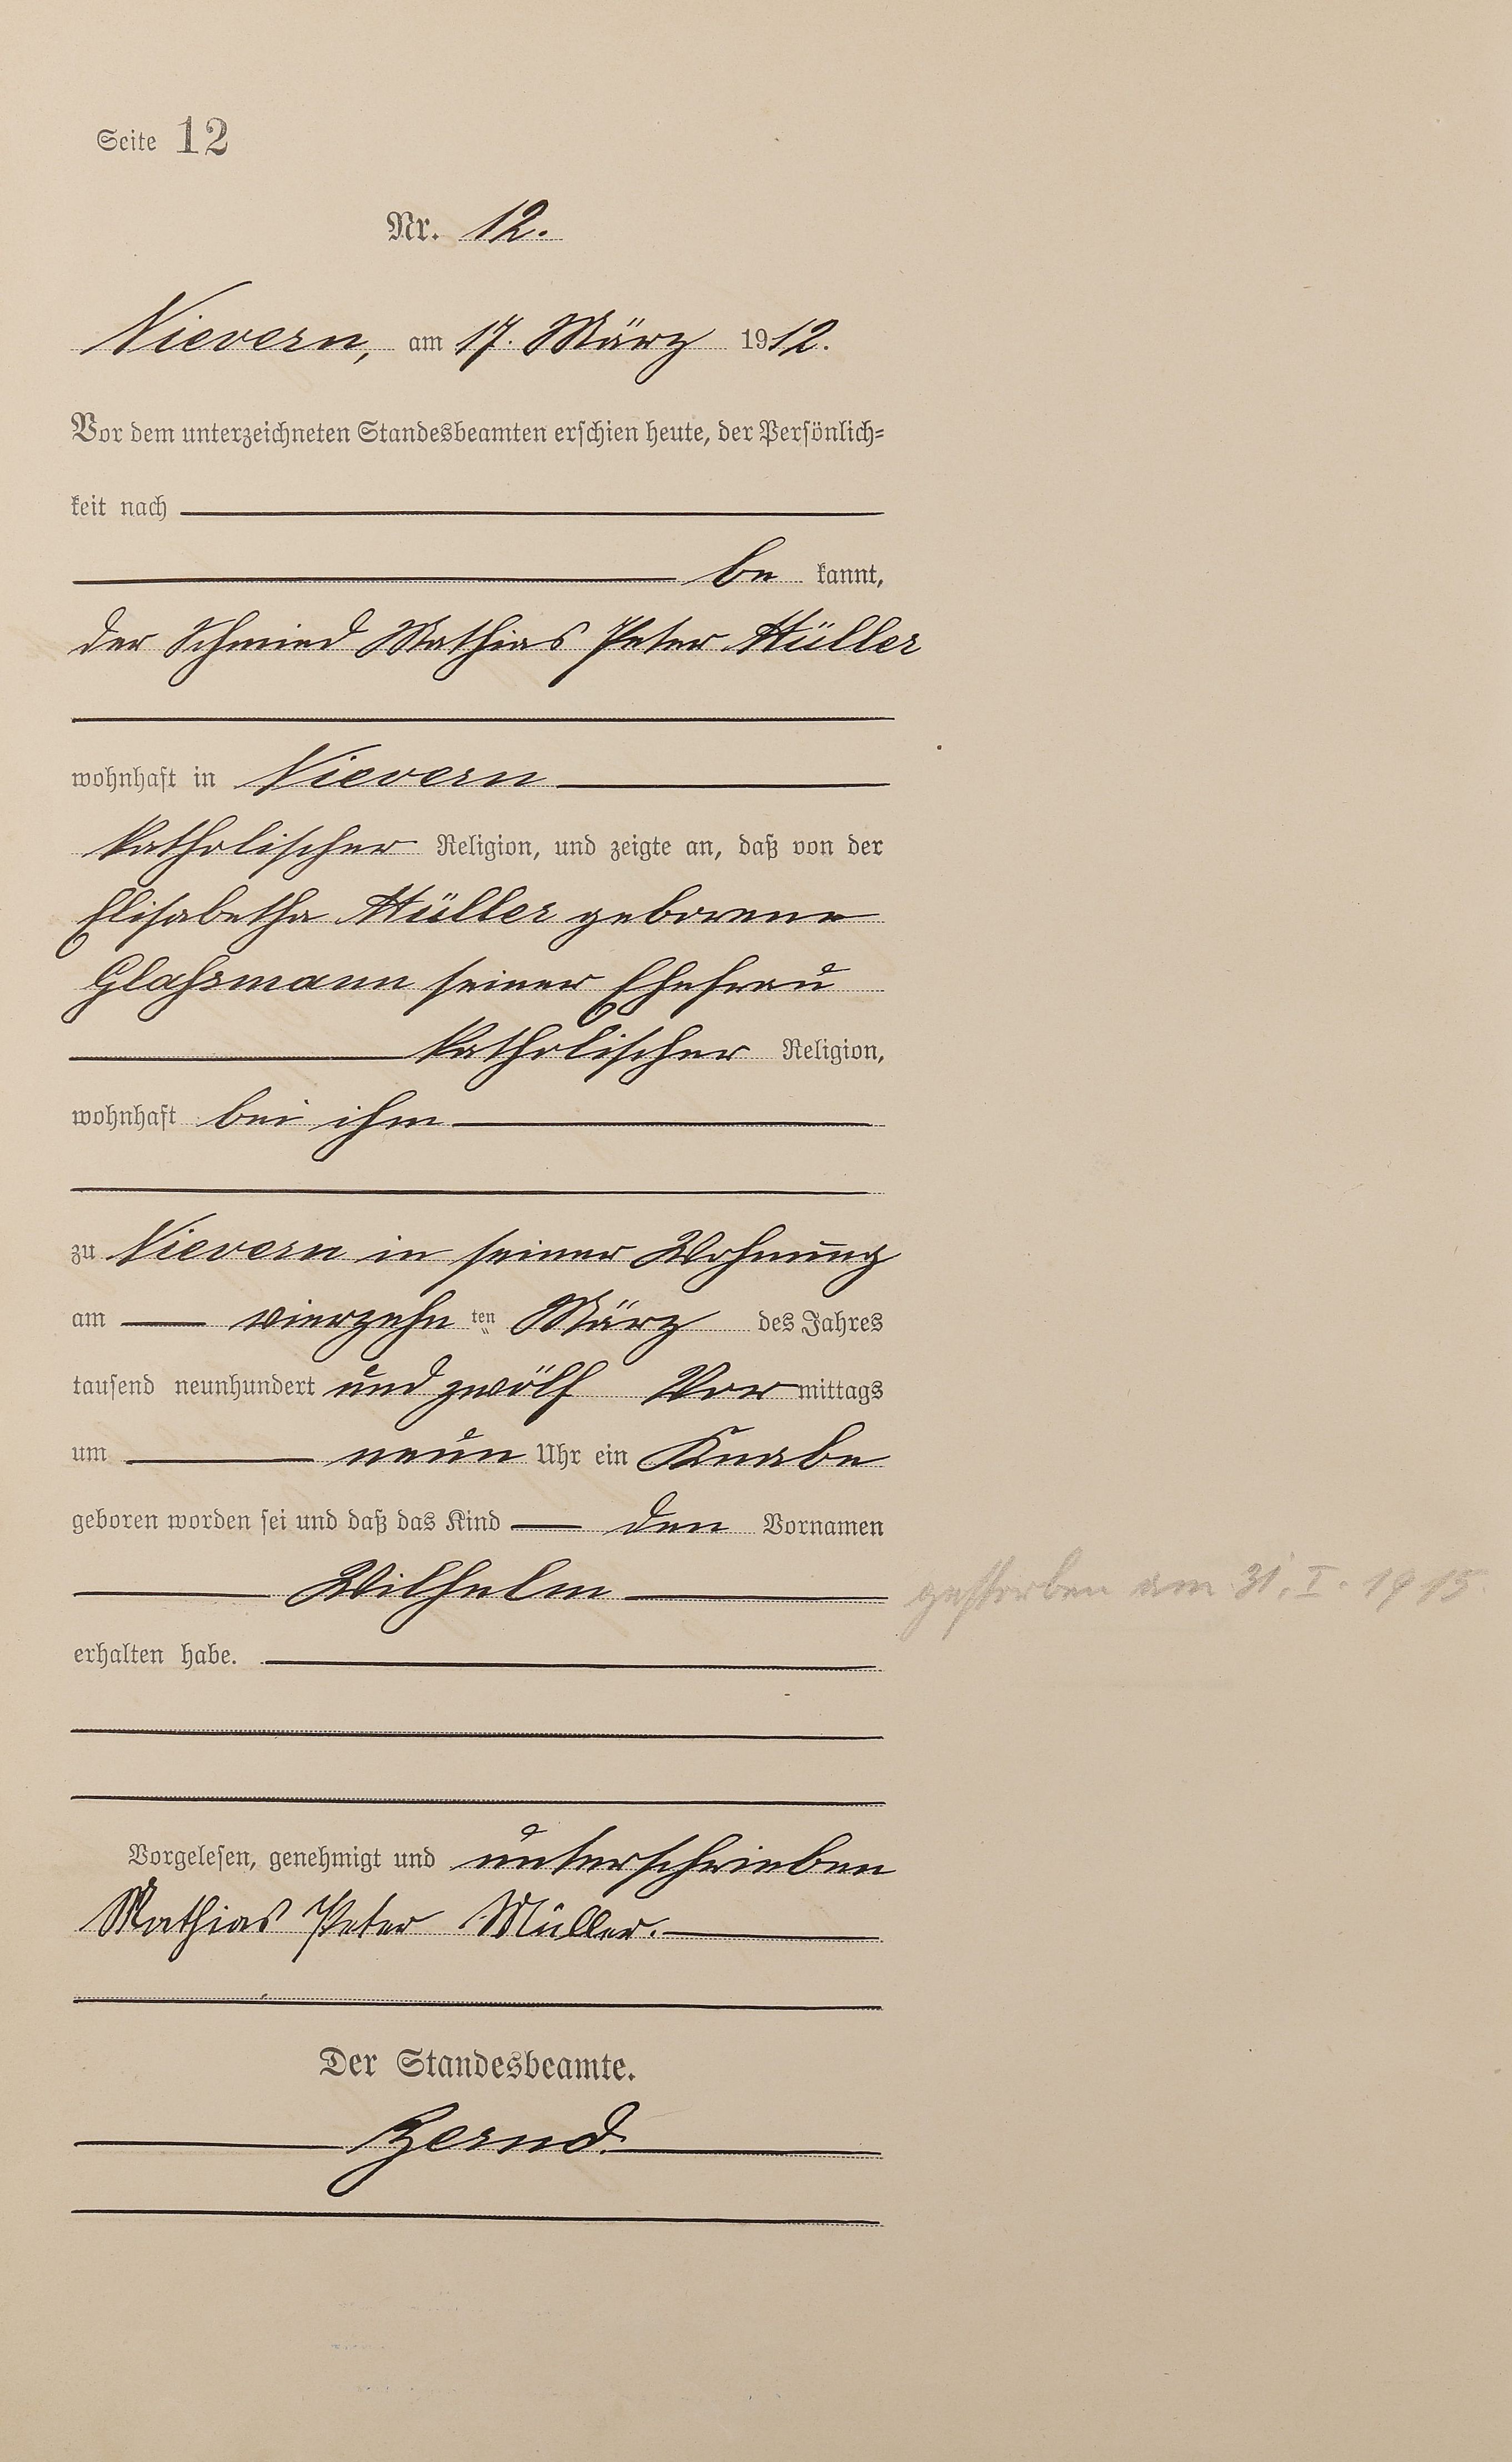 Seite 12
Nr. 12.
Nievern, am 17. März 1912.
Vor dem unterzeichneten Standesbeamten erschien heute, der Persönlich=
keit nach
be kannt,
der Schmied Mathias Peter Müller
wohnhaft in Nievern
katholischer Religion, und zeigte an, daß von der
Elisabetha Müller geborene
Glaßmann seiner Ehefrau
katholischer Religion,
wohnhaft bei ihm
zu Nievern in seiner Wohnung
am vierzehn ten März des Jahres
tausend neunhundert und zwölf Vor mittags
um neun Uhr ein Knabe
geboren worden sei und daß das Kind den Vornamen
Wilhelm gestorben am 31. I. 1915.
erhalten habe.
Vorgelesen, genehmigt und unterschrieben
Mathias Peter Müller.
Der Standesbeamte.